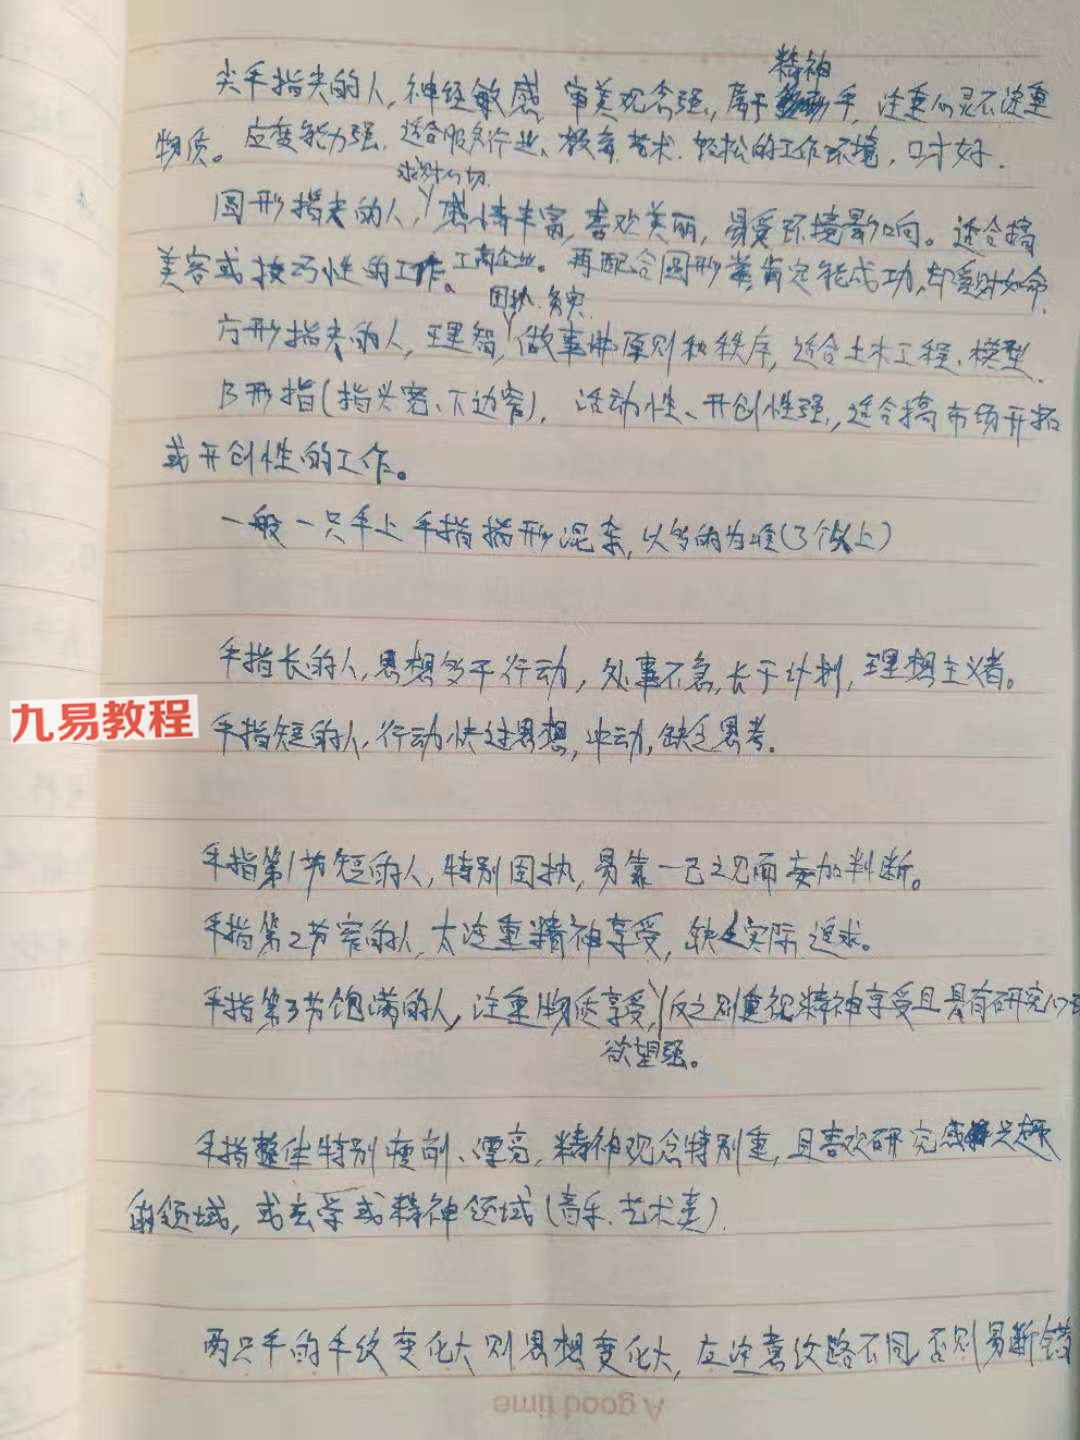 精神
尖手指尖的人,神经敏感 审美观念强,属于手,注重心灵不注重
物质。应变能力强.适合服务行业、教育.艺术.轻松的工作环境,口才好.
求财心切.
圆形指尖的人,感情丰富,喜欢美丽,易受环境影响。适合搞
美容或技巧性的工作、工商企业。再配合圆形掌,肯定能成功,却爱财如命.
固执.务实
方形指尖的人,理智,做事讲原则和秩序,适合土木工程.模型.
B形指(指尖宽、下边窄),活动性、开创性强,适合搞市场开拓
或开创性的工作。
一般一只手上手指指形混杂,以多的为准(3个以上)
手指长的人,思想多于行动,处事不急,长于计划,理想主义者。
九易教程
手指短的人,行动快过思想,冲动,缺乏思考。
手指第1节短的人,特别固执,易靠一己之见而妄加判断。
手指第2节窄的人,太注重精神享受,缺乏实际追求。
手指第3节饱满的人,注重物质享受,反之则重视精神享受且具有研究心
欲望强。
手指整体特别瘦削、漂亮,精神观念特别重,且喜欢研究感兴趣
的领域,或玄学或精神领域(音乐.艺术类).
两只手的手纹变化大则思想变化大,应注意纹路不同,否则易断错
A good time